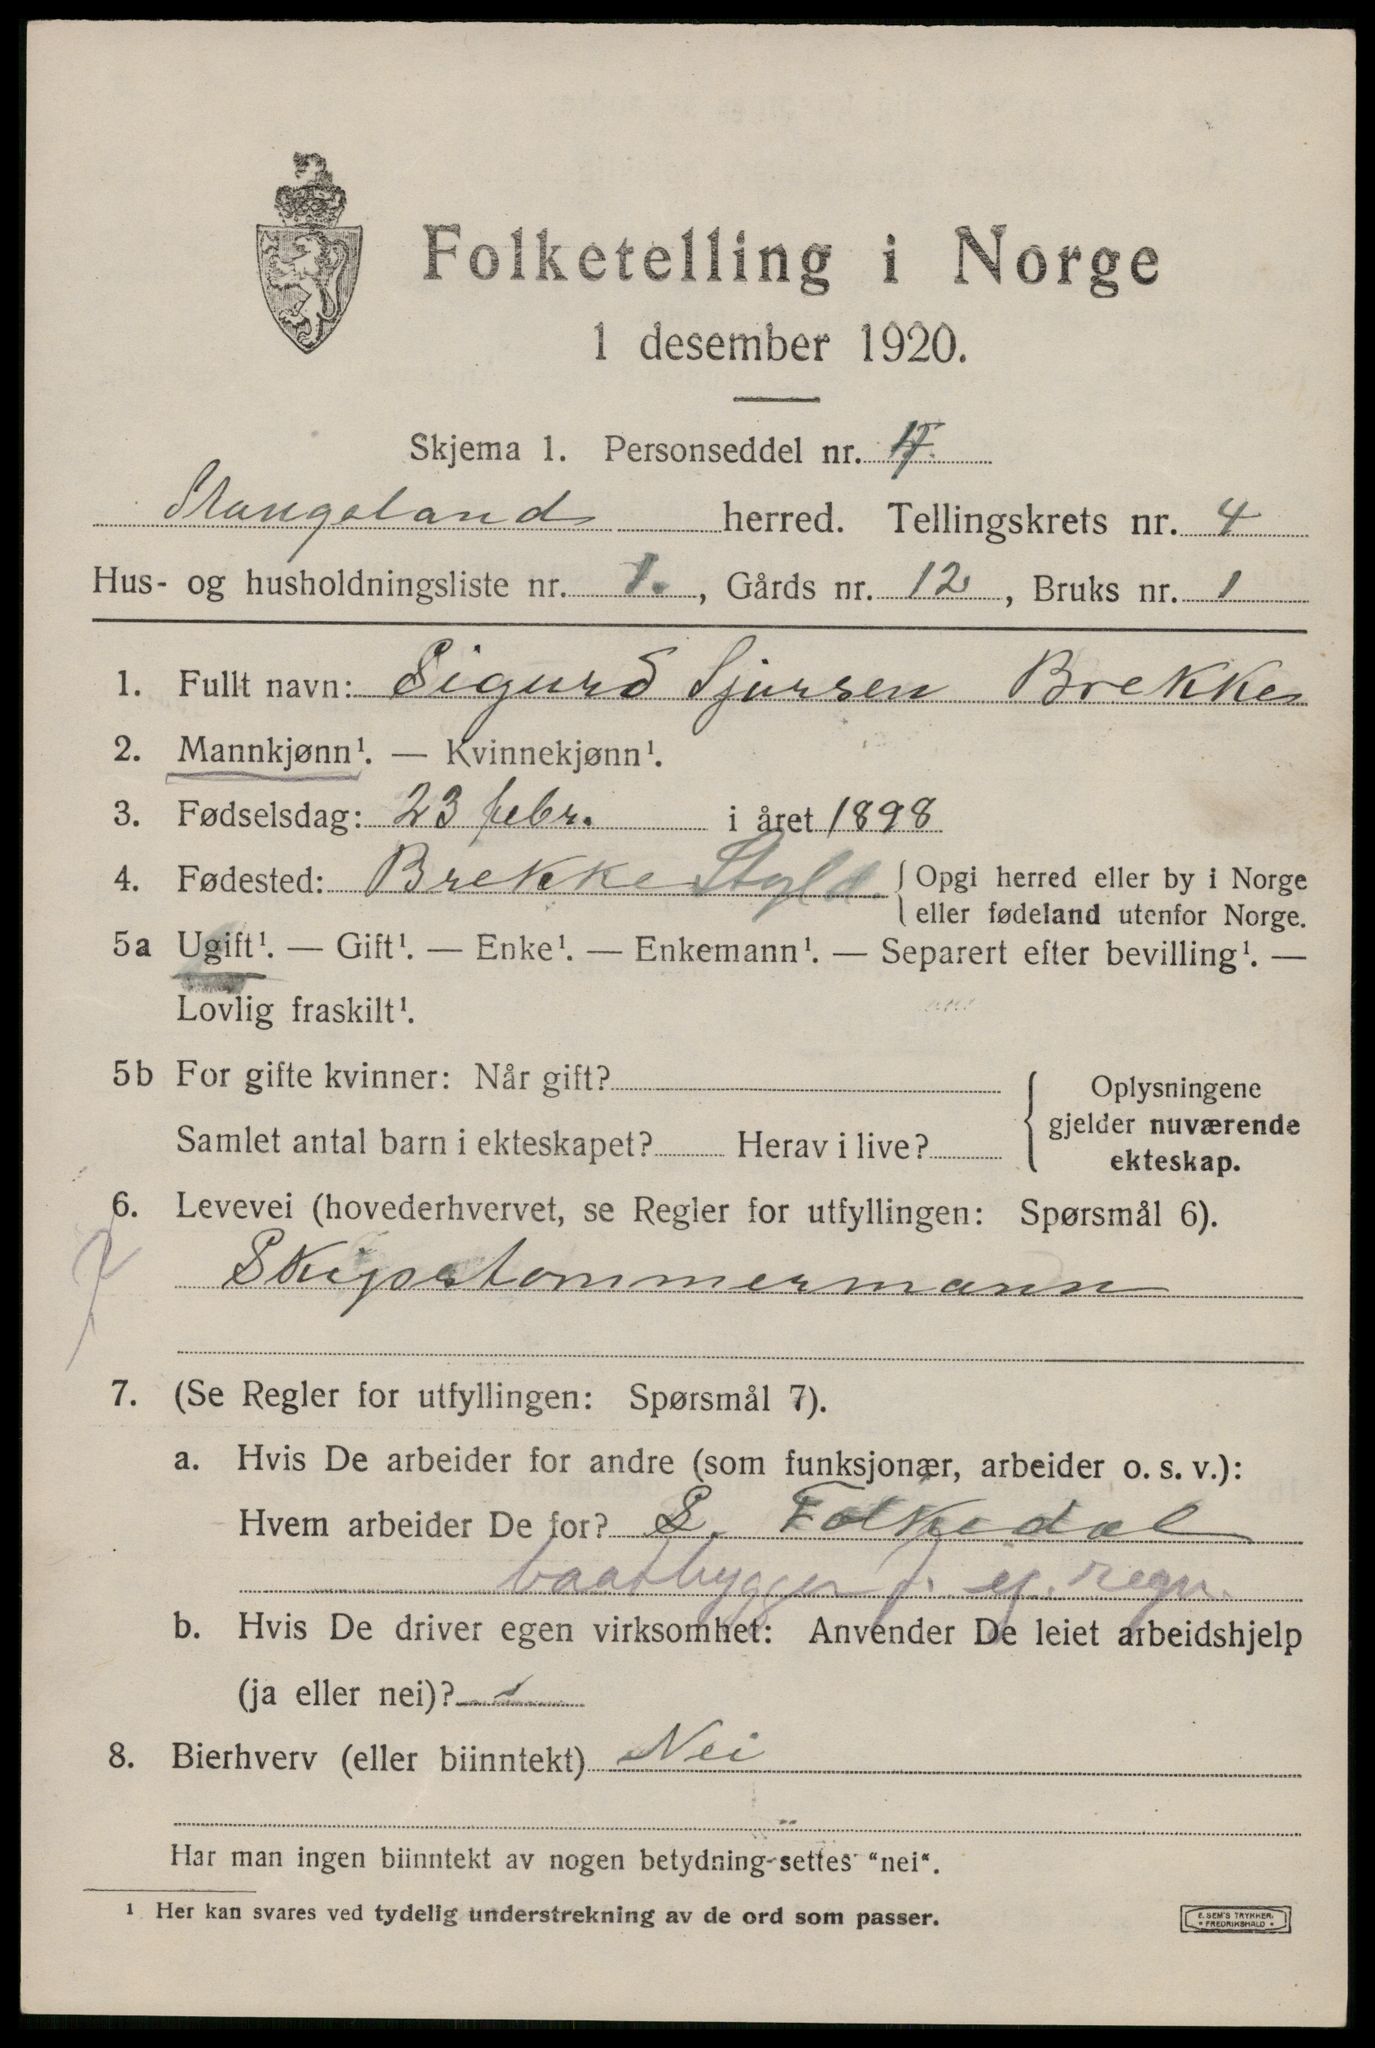 Folketelling i Norge
1 desember 1920.
Skjema 1. Personseddel nr.
Stangeland herred. Tellingskrets nr. 4
Hus- og husholdningsliste nr. 1. , Gårds nr. 12 , Bruks nr. 1
1. Fullt navn: Sigurd Sjursen Brekke
2. Mannkjønn¹. — Kvinnekjønn¹.
3. Fødselsdag: 23 febr. i året 1898
4. Fødested: Brekke { Opgi herred eller by i Norge
eller fødeland utenfor Norge.
5a Ugift¹. — Gift¹. — Enke¹. — Enkemann¹. — Separert efter bevilling¹. —
Lovlig fraskilt¹.
5b For gifte kvinner: Når gift?
Samlet antal barn i ekteskapet? Herav i live?
{ Oplysningene
gjelder nuværende
ekteskap.
6. Levevei (hovederhvervet, se Regler for utfyllingen: Spørsmål 6).
Skipstommermann
7. (Se Regler for utfyllingen: Spørsmål 7).
a. Hvis De arbeider for andre (som funksjonær, arbeider o. s. v.):
Hvem arbeider De for? S. Folkedal
baatbygger f. eg. regn.
b. Hvis De driver egen virksomhet: Anvender De leiet arbeidshjelp
(ja eller nei)?
8. Bierhverv (eller biinntekt) Nei
Har man ingen biinntekt av nogen betydning settes "nei".
¹ Her kan svares ved tydelig understrekning av de ord som passer.
E. SEM'S TRYKKER.
* FREDRIKSHALD *